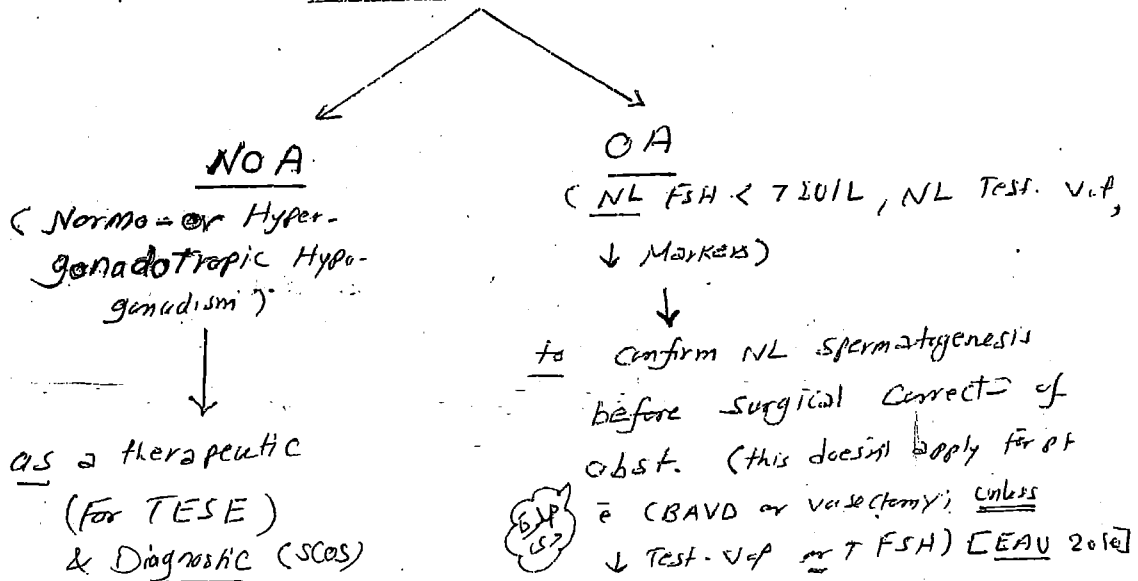 NOA
( Normo- or Hyper-
gonadotropic Hypo-
gonadism )
as a therapeutic
(For TESE)
& Diagnostic (SCOS)
OA
( NL FSH < 7 IU/L, NL Test. Vol,
↓ Markers)
to Confirm NL spermatogenesis
before surgical Correct= of
obst. (this doesn't apply for pt
ē CBAVD or vasectomy; unless
↓ Test. Vol or ↑ FSH) [EAU 2010]